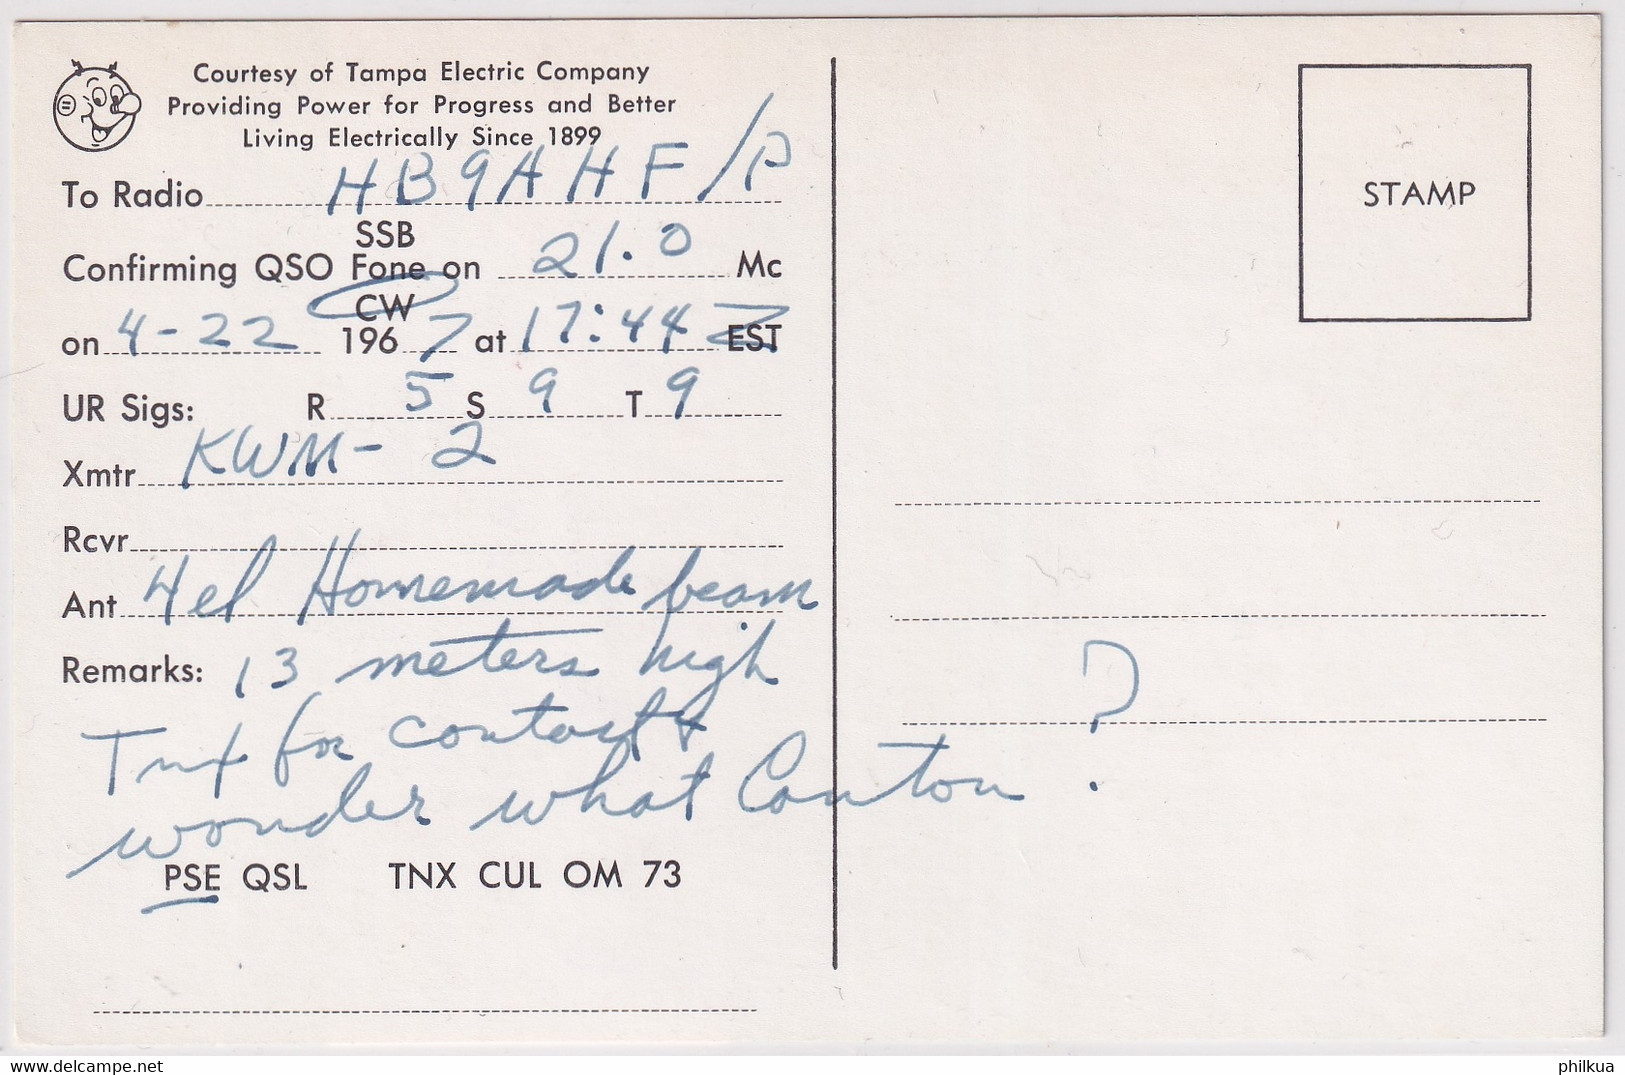 Courtesy of Tampa Electric Company
Providing Power for Progress and Better
Living Electrically Since 1899
To Radio HB9AHF/P
SSB
Confirming QSO Fone on 21.0 Mc
CW
on 4-22 1967 at 17:44 Z EST
UR Sigs: R 5 S 9 T 9
Xmtr KWM-2
Rcvr
Ant 4el Homemade beam
Remarks: 13 meters high
Tnx for contact &
wonder what Canton ?
PSE QSL TNX CUL OM 73
STAMP
philkua